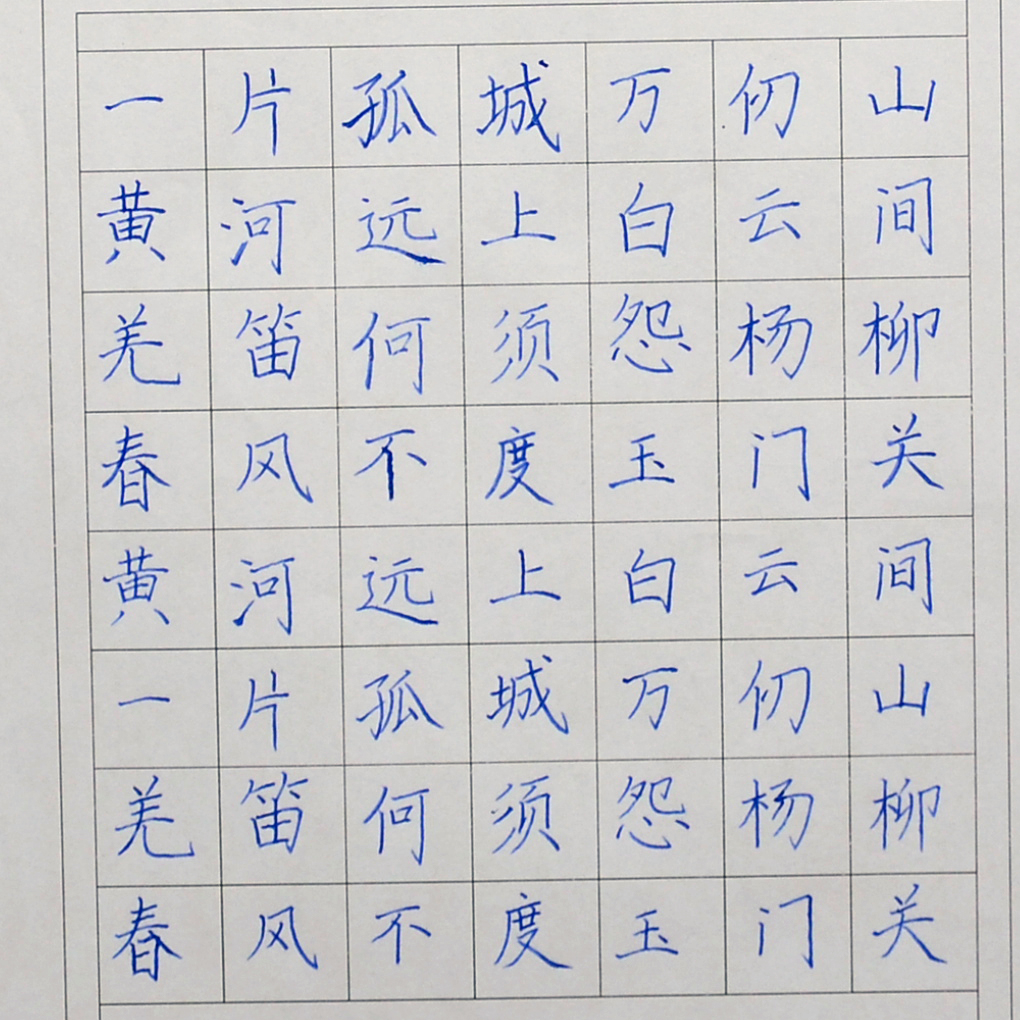 一片孤城万仞山
黄河远上白云间
羌笛何须怨杨柳
春风不度玉门关
黄河远上白云间
一片孤城万仞山
羌笛何须怨杨柳
春风不度玉门关